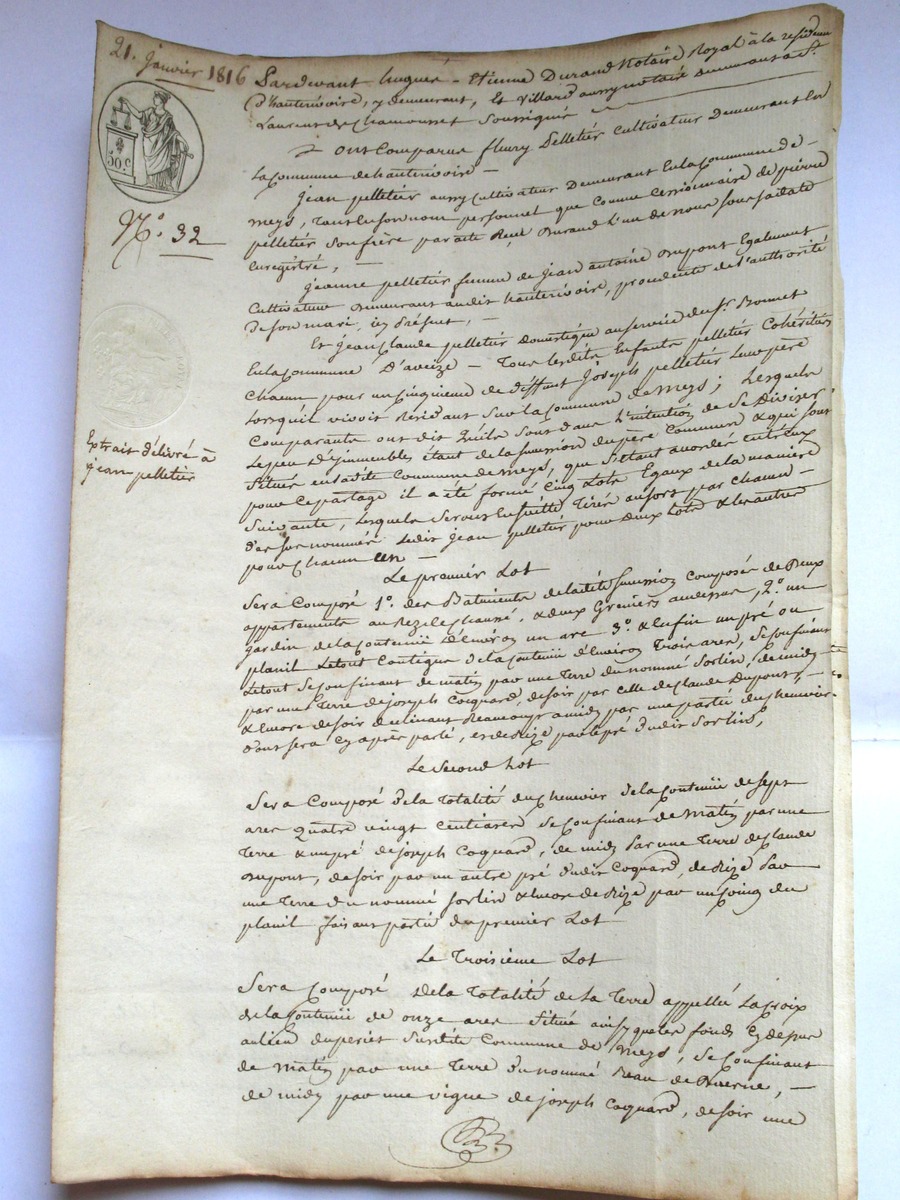 21. Janvier 1816
50. C.
N.o 32
Extrait délivré à
jean pelletier
Pardevant hugues-Etienne Durand Notaire Royal à la résidence
d'hauterivoire, y demeurant, Et Villard aussy notaire demeurant a St.
Laurent de Chamousset Soussignés
Ont Comparus fleury Pelletier Cultivateur Demeurant En
La Commune de hauterivoire —
Jean pelletier aussy Cultivateur Demeurant En la Commune de —
meys, tant En son nom personnel que Comme Cessionnaire de pierre
pelletier Son frère par acte Reçu Durand L'un de nous Sous sa date
Enregistré, —
jeanne pelletier femme de jean antoine Dupont Egalement
Cultivateur Demeurant audit hauterivoire, procedente de l'authorité
de Son mari, icy Présent, —
Et jean Claude pelletier Domestique au Service du Sr. Bonnet
En la Commune D'aveize — Tous Lesdits Enfants pelletier Cohéritiers
Chacun pour un Cinquieme de deffunt Joseph pelletier Leur père
Lorsqu'il vivoit Résidant Sur la Commune de meys; Lesquels
Comparants ont dit qu'ils Sont dans L'intention de Se Diviser
Le peu D'immeubles étant de la Succession du père Commun & qui Sont
Situés en ladite Commune de meys, que S'étant accordés entr'eux
pour Ce partage il a été formé Cinq Lots Egaux de la manière
Suivante, Lesquels Seront En Suitte Tirés au Sort par Chacun
des Sus nommés Ledit jean pelletier pour deux Lots & les autres
pour Chacun un —
Le premier Lot
Sera Composé 1o. des Batiments de ladite Succession Composés de Deux
appartements au Rez de Chaussé, & deux Greniers au dessus, 2o. un
jardin de la Contenue D'environ un are 3o. & Enfin un pré ou
planil Le tout Contigue de la Contenue d'Environ Trois ares, Se Confinant
Le tout Se Confinant de matin par une Terre du nommé Sorlin, de midy —
par une Terre de joseph Coquard, de soir par celle de Claude Dupont, —
& Encore de soir declinant Beaucoup a midy par une partie du Chenevier
dont sera Cy après parlé, et de Bize par le pré dudit Sorlin,
Le Second Lot
Sera Composé de la Totalité du Chenevier de la Contenue de Sept
ares Quatre vingt Centiares Se Confinant de Matin par une
Terre & un pré de joseph Coquard, de midy Par une Terre de Claude
Dupont, de soir par un autre pré dudit Coquard, de Bize Par
une Terre du nommé Sorlin & Encore de Bize par un Coing du
planil faisant partie du premier Lot
Le Troisième Lot
Sera Composé De la Totalité de La Terre appellée La Croix
de la Contenue de onze ares Située ainsy que les fonds Cy dessus
au lieu du Sur ladite Commune de Meys, Se Confinant
de Matin par une Terre du nommé —
de midy par une vigne de joseph Coquard, de soir une